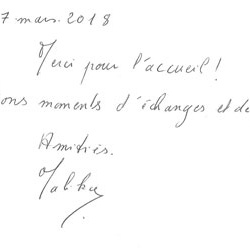 7 mars. 2018
Merci pour l'accueil !
ons moments d'échanges et de
Amitiés.
Malika